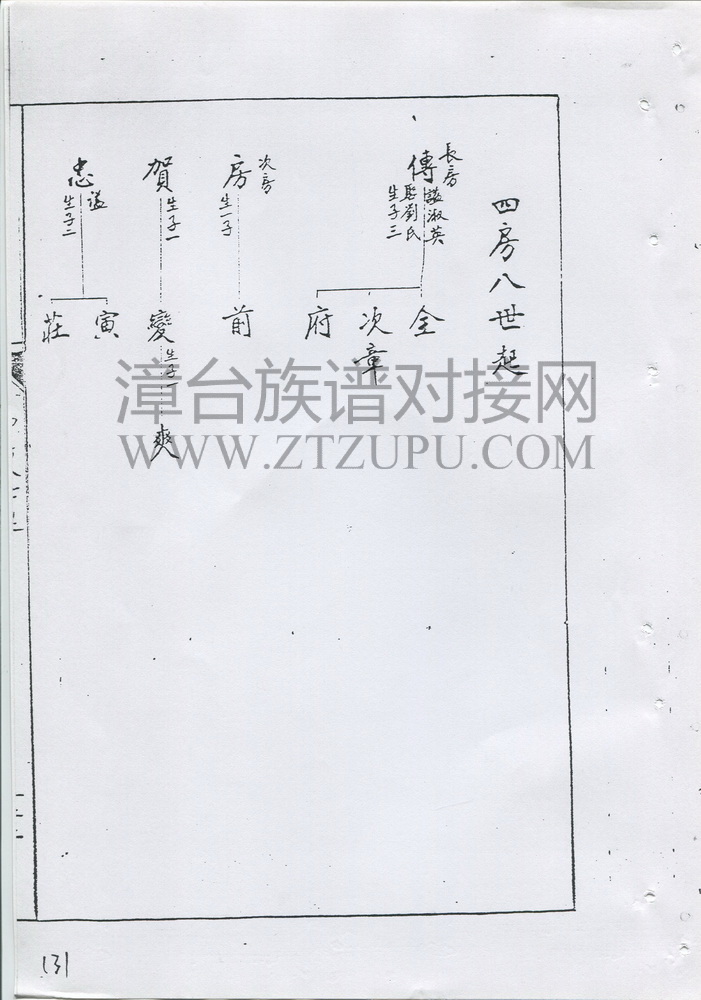 四房八世起
長房
傳
諱淑英
配劉氏
生子三
全
次章
府
次房
房
生一子
前
賀
生子一
變
生子一
爽
忠
諡
生子二
寅
莊
漳台族谱对接网
WWW.ZTZUPU.COM
131